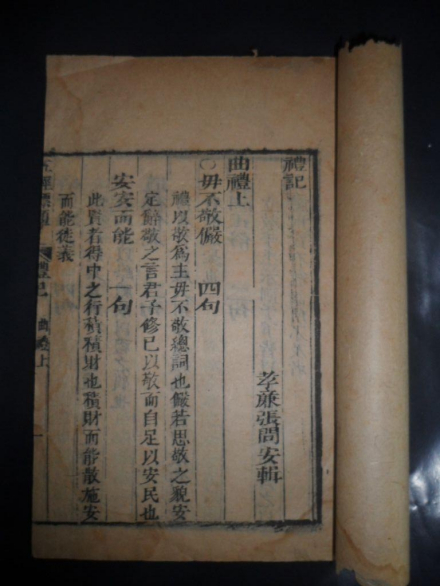 禮記
孝亷張問安輯
曲禮上
〇毋不敬儼 四句
禮以敬爲主毋不敬總詞也儼若思敬之貌安
定辭敬之言君子修已以敬而自足以安民也
安安而能 一句
此賢者得中之行積積財也積財而能散施安
而能徙義
五經 禮記 曲禮上 一